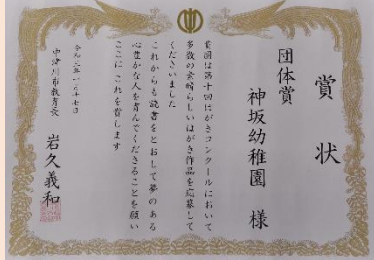 賞状
団体賞
神坂幼稚園 様
貴園は第十回はがきコンクールにおいて
多数の素晴らしいはがき作品を応募して
くださいました
これからも読書をとおして夢のある
心豊かな人を育んでくださることを願い
ここに これを賞します
中津川市教育長 岩久義和